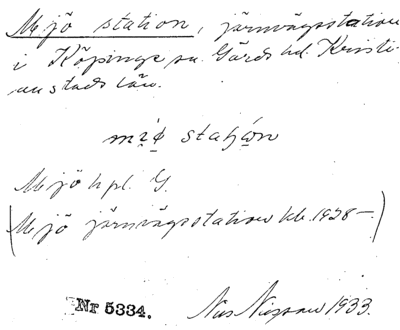 Mejö station, järnvägsstation
i Köpinge sn. Gärds hd. Kristi-
anstads län.
station
Mejö hpl. G.
(Mejö järnvägsstation 1928–)
Nr 5334. 1933.